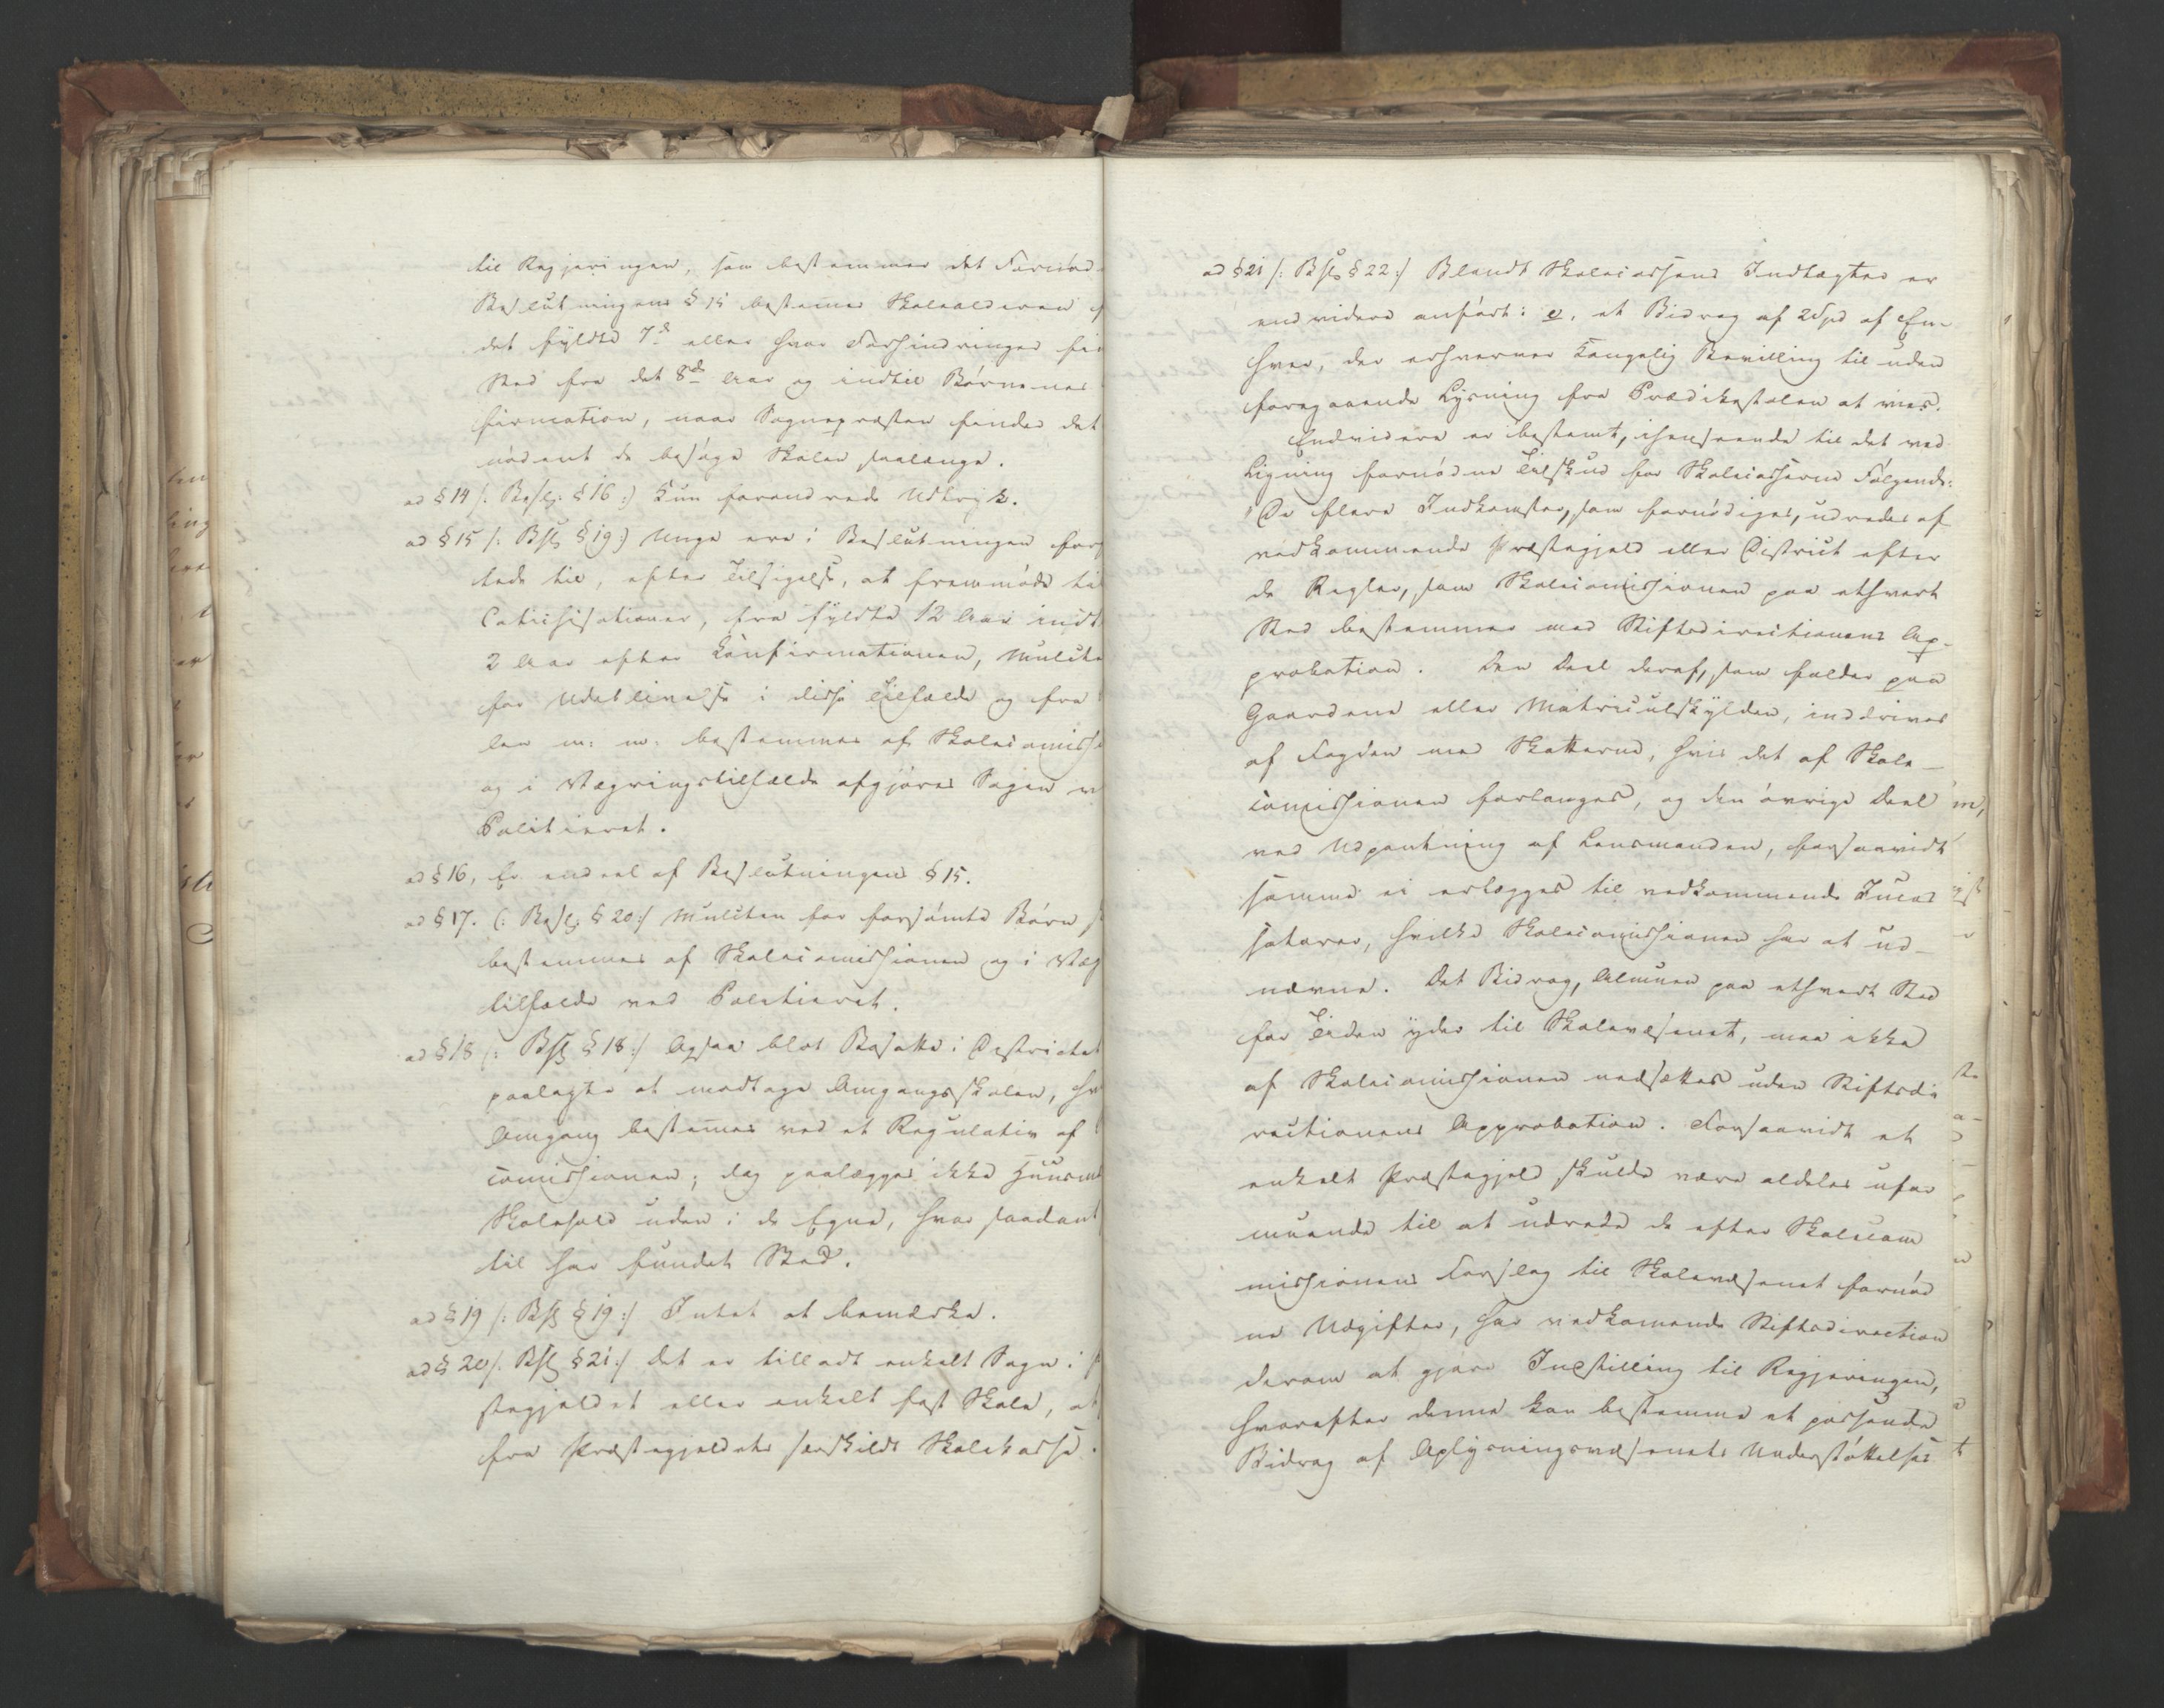 til Regjeringen, som bestemmer det Fornød-
Beslutningens § 15 bestemes Skolealderen f
det fyldte 7de eller hvor Forhindringer fin
Sted fra det 8de Aar og indtil Børnenes
firmation, naar Sognepræsten finder det
nødent de besøge Skolen saalænge.
ad § 14 /: Besl. § 16 :/ Kun forandrede Udtryk.
ad § 15 /: Bsl § 19 :/ Unge ere i Beslutningen forp
tede til, efter Tilsigelse, at fremmøde til
Catechisationer, fra fyldte 12 Aar indt
2 Aar efter Konfirmationen, Mulcte
for Udeblivelse i disse Tilfælde og fra
len m: m: bestemmes af Skolecomissi
og i Vægringstilfælde afgjøres Sagen v
Politieret.
ad § 16, Er endeel af Beslutningens § 15.
ad § 17. /: Besl. § 20 :/ Mulcten for forsømte Børn s
bestemmes af Skolecomissionen og i Væg
tilfælde ved Politieret.
ad § 18 /: Bsl § 18 :/ Ogsaa blot Bosatte i Districtet
paalagte at modtage Omgangsskolen, hv
Omgang bestemes ved et Regulativ af
comissionen; dog paalægges ikke Huusm
Skolehold uden i de Egne, hvor saadant
til har fundet Sted.
ad § 19 /: Bsl § 19 :/ Intet at bemærke.
ad § 20 /: Bsl § 21 :/ Det er tilladt enkelt Sogn i P
stegjeldet eller enkelt fast Skole, at
fra Præstegjeldets særskildt Skolekasse.
ad § 21 /: Bsl § 22 :/ Blandt Skolecassens Indtægter er
endvidere anført: e, et Bidrag af 2 Spd af En-
hver, der erhverver Kongelig Bevilling til uden
foregaaende Lysning fra Prædikestolen at vies.
Endvidere er bestemt, ihenseende til det ved
Ligning fornødne Tilskud for Skolecasserne Følgende:
De flere Indkomster, som fornødiges, udredes af
vedkommende Præstegjeld eller District efter
de Regler, som Skolecomissionen paa ethvert
Sted bestemmer med Stiftsdirectionens Ap-
probation. Den Deel deraf, som falder paa
Gaardene eller Matriculskylden, inddrives
af Fogden med Skatterne, hvis det af Skole-
comissionen forlanges, og den øvrige Deel
ved Udpantning af Lensmanden, forsaavidt
samme ei erlægges til vedkommende Incas
satorer, hvilke Skolecomissionen har at ud-
nævne. Det Bidrag, Almuen paa ethvert Sted
for Tiden yder til Skolevæsenet, maa ikke
af Skolecomissionen nedsættes uden Stiftsdi
rectionens Approbation. Forsaavidt et
enkelt Præstegjeld skulde være aldeles ufor
muende til at udrede de efter Skolecom
missionens Forslag til Skolevæsenet fornød
ne Udgifter, har vedkomende Stiftsdirection
derom at gjøre Indstilling til Regjeringen,
hvorefter denne kan bestemme et passende
Bidrag af Oplysningsvæsenets Understøttelses